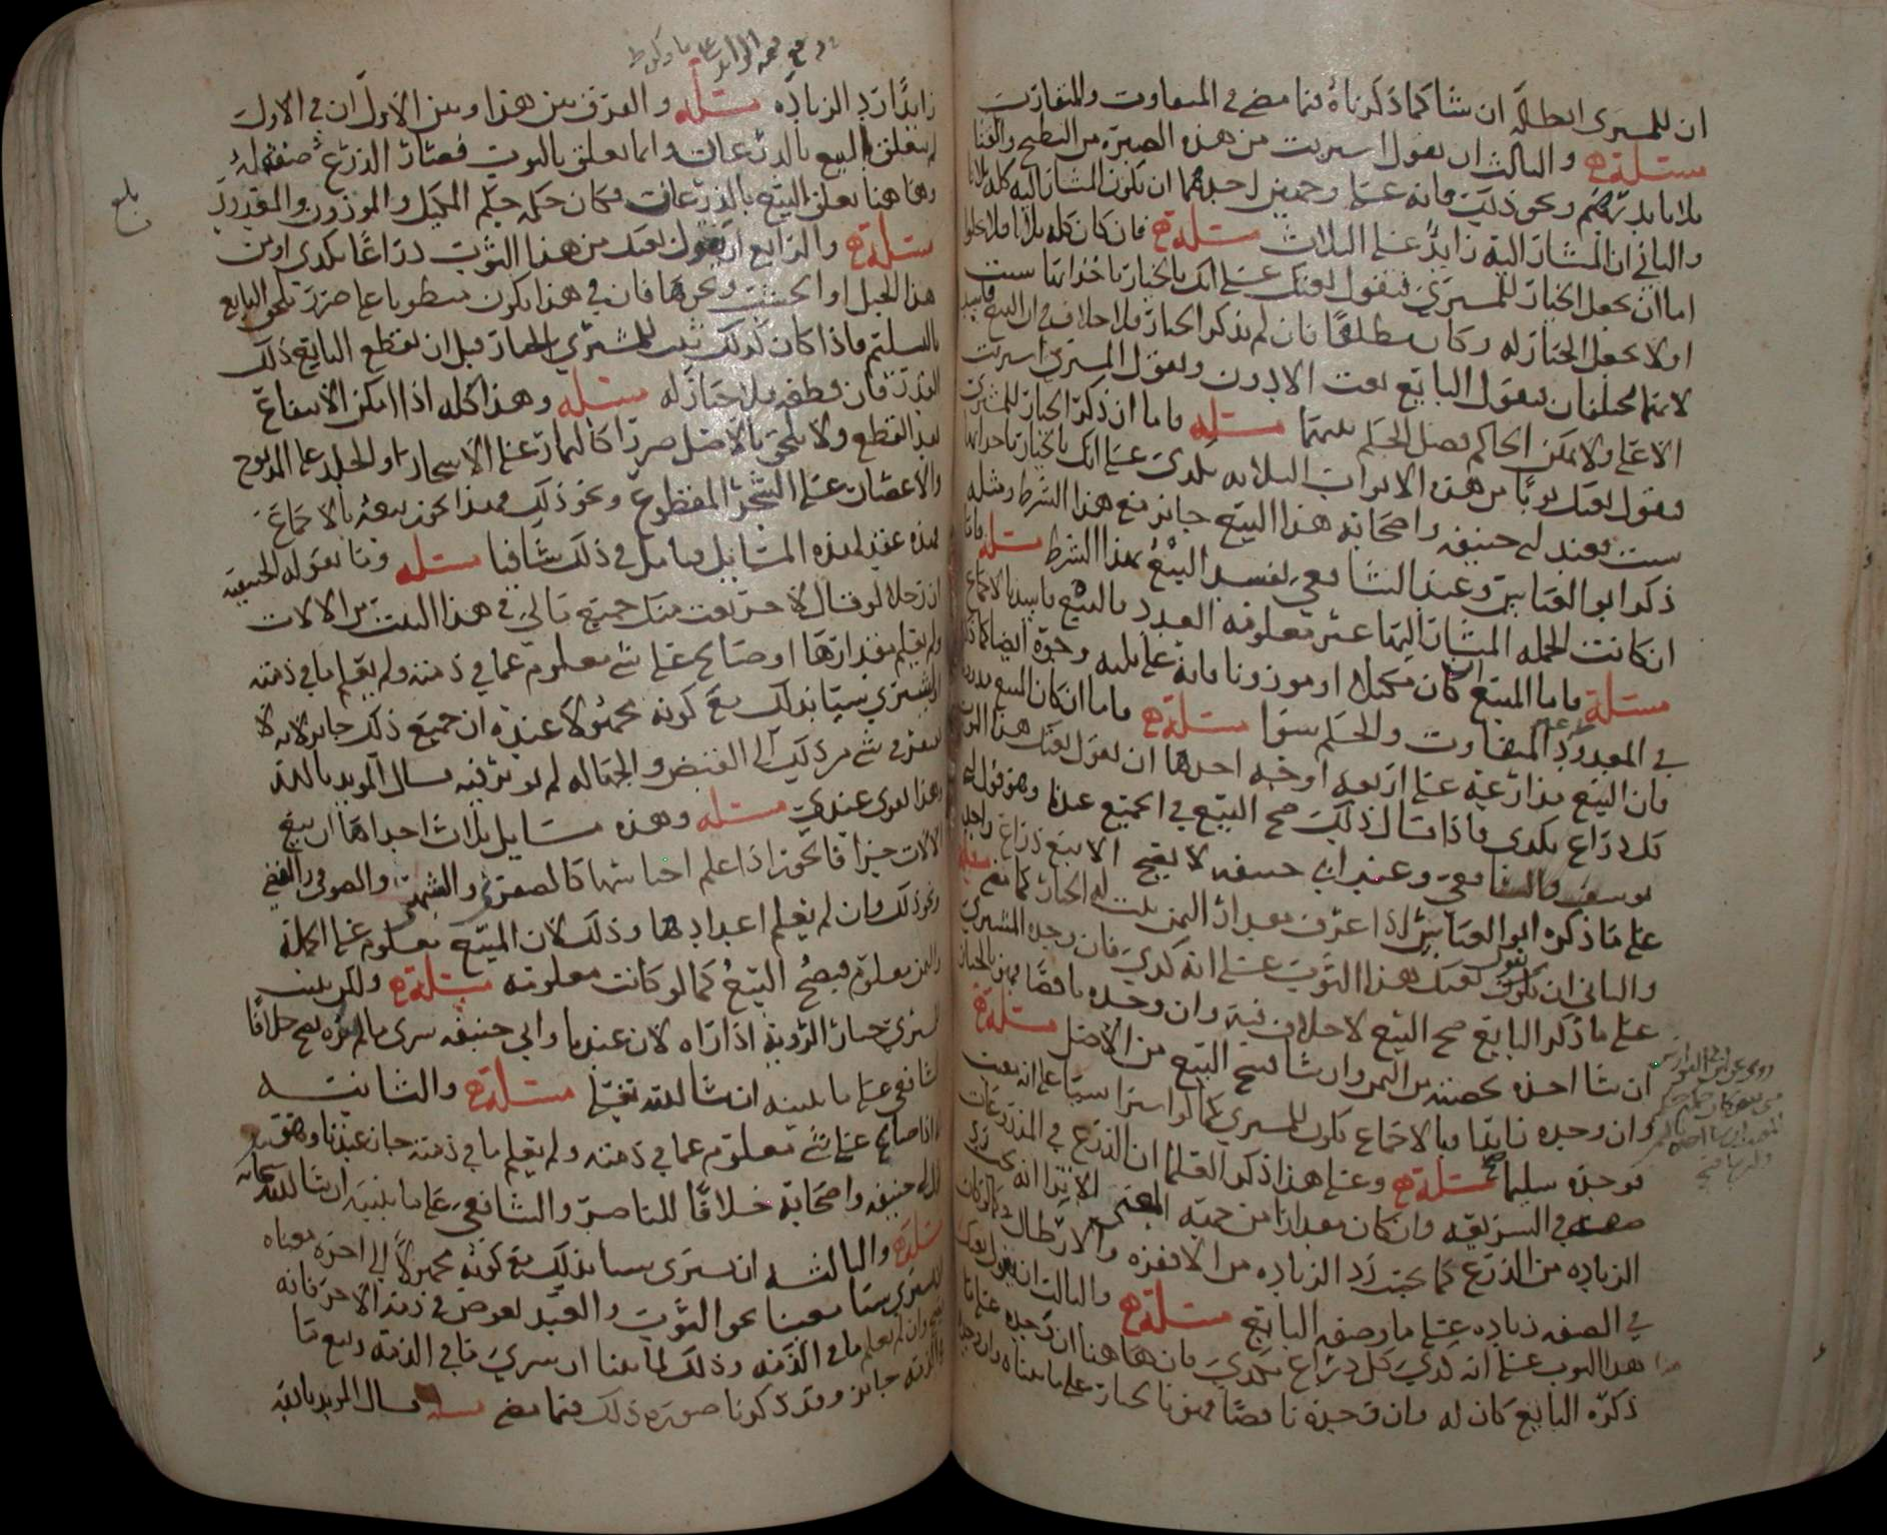 ان للمسرى ابطاله ان شا كما ذكرناه فيما مضى في المتفاوت والمتقارب
مسئلة والثالث ان يقول اشتريت من هذه الصبرة من البطيخ والقثا
ثلاثا بدرهم ونحو ذلك فانه على وجهين احدهما ان يكون المشار اليه كله ثلاثا
والثاني ان المشار اليه زايد على الثلاث مسئلة فان كان كله ثلاثا فلا يخلوا
اما ان يجعل الخيار للمشتري فيقول بعتك على انك بالخيار تاخذ ايها شيت
اولا يجعل الخيار له وكان مطلقا فان لم يذكر الخيار فلا خلاف في ان البيع فاسد
لانهما يختلفان فيقول البايع بعت الادون ويقول المشترى اشتريت
الاعلى ولا يمكن الحاكم فصل الحكم بينهما مسئله فاما ان ذكر الخيار للمشترى
فيقول بعتك ثوبا من هذه الاثواب الثلاثه بكذى على انك بالخيار تاخذ ايها
شيت فعند ابي حنيفه واصحابه هذا البيع جايز مع هذا الشرط ومثله
ذكر ابو العباس وعند الشافعي يفسد البيع بهذا الشرط مسئلة فاما
ان كانت الجمله المشار اليها غير معلومه العدد فالبيع فاسد بالاجماع
مسئلة فاما المبيع ان كان مكيلا او موزونا فانه على ثلثه وجوه ايضا كما ذكرنا
في المعدود المتفاوت والحكم سوا مسئلة فاما ان كان البيع مذارعه
فان البيع مذارعة على اربعه اوجه احدها ان يقول بعتك هذا الثوب
كل ذراع بكذى فاذا قال ذلك صح البيع في الجميع عندنا وهو قول ابي
يوسف والشافعي وعند ابي حنيفه لا يصح الا بيع ذراع واحد
على ما ذكره ابو العباس اذا عرف مقدار الثمن ثبت له الخيار كما مضى مسئله
والثاني ان يقول بعتك هذا الثوب على انه كذي فان وجده المشتري
على ما ذكر البايع صح البيع لا خلاف فيه وان وجده ناقصا فهو بالخيار
ان شا اخذه بحصته من الثمن وان شا فسخ البيع من الاصل مسئلة
وان وجده زايدا فبالاجماع يكون للمسري كما لو اشترا شيا على انه معيب
فوجده سليما صح مسئلة وعلى هذا ذكر العلما ان الذرع في المذروعات
صفه في الشريعه وان كان مقدارا من جهه المعنى الا ترى انه يجب رد
الزياده من الذرع كما يجب رد الزياده من الاقفزه والارطال كما لو كان
في الصفه زياده على ما وصفه البايع مسئلة والثالث ان يقول بعتك
هذا الثوب على انه كذي كل ذراع بكذي فان هاهنا ان وجده على ما
ذكره البايع كان له وان وجده ناقصا فهو بالخيار على ما بيناه وان وجده
زايدا رد الزياده مسئله والفرق بين هذا وبين الاول ان في الاول
لم يتعلق البيع بالذرعات وانما تعلق بالثوب فصار الذرع صفه له
وهاهنا تعلق البيع بالذرعات فكان حكمه حكم المكيل والموزون والمعدود
مسئلة والرابع ان يقول بعتك من هذا الثوب ذراعا بكذى او من
هذا الحبل او الخشب ونحوها فان في هذا يكون منطويا على ضرر يلحق البايع
بالتسليم فاذا كان كذلك ثبت للمشتري الخيار قبل ان يقطع البايع ذلك
القدر فان قطعه فلا خيار له مسئله وهذا كله اذا امكن الانتفاع
بعد القطع ولا يلحق بالاصل ضررا كالثمار على الاشجار والجلد على المذبوح
والاغصان على الشجر المقطوع ونحو ذلك فهذا يجوز بيعه بالاجماع
فهذه عقد لهذه المسايل فتامل في ذلك شافيا مسئله ومما يقوله الحنفيه
ان رجلا لو قال لاخر بعت منك جميع مالي في هذا البيت من الالات
ولم يعلم مقدارها او صالح على شي معلوم عما في ذمته ولم يعلم ما في ذمته
او اشترى شيا بذلك مع كونه مجهولا عنده ان جميع ذلك جايز لانه لا
يفتقر في شي من ذلك الى القبض والجهاله لم يوثر فيه قال المويد بالله
وهذا قوى عندي مسئله وهذه مسايل ثلاث احداها ان يبيع
الالات جزافا يجوز اذا علم اجناسها كالصفر والشبه والصوف والقطن
ونحو ذلك وان لم يعلم اعدادها وذلك لان المبيع معلوم على الجملة
والثمن معلوم فيصح البيع كما لو كانت معلومه مسئلة ولكن يثبت
للمشتري خيار الرويه اذا راه لان عندنا وابي حنيفه شرى ما لم يره يصح خلافا
للشافعي على ما نبينه انشا الله تعلى مسئلة والثانيه
اذا صالح على شي معلوم عما في ذمته ولم يعلم ما في ذمته جاز عندنا وهو قول
ابي حنيفه واصحابه خلافا للناصر والشافعي على ما نبينه ان شا الله سبحانه
مسئلة والثالثه ان يشترى شيا بذلك مع كونه مجهولا الى اخره معناه
ان يشتري شيا معينا نحو الثوب والعبد بعوض في ذمه الاخر فانه
يصح وان لم يعلم ما في الذمه وذلك لما بينا ان شري ما في الذمه وبيع ما
في الذمه جايز وقد ذكرنا صوره ذلك فيما مضى مسئله قال المويد بالله
بلغ